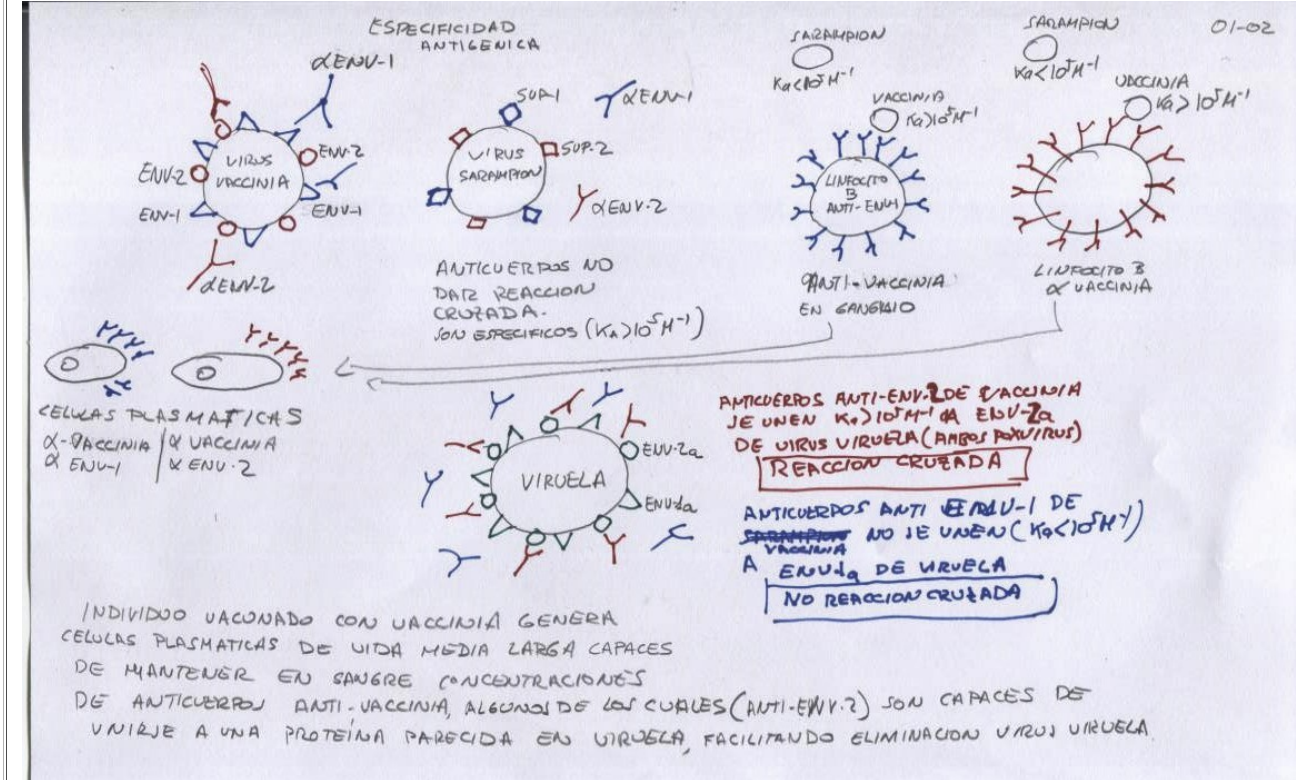 ESPECIFICIDAD
ANTIGENICA
01-02
αENV-1
ENV-2
ENV-2
VIRUS
VACCINIA
ENV-1
ENV-1
αENV-2
SUP-1
αENV-1
VIRUS
SARAMPION
SUP-2
αENV-2
ANTICUERPOS NO
DAR REACCION
CRUZADA.
SON ESPECIFICOS (Ka>10⁵M⁻¹)
SARAMPION
Ka<10⁵M⁻¹
VACCINIA
Ka>10⁵M⁻¹
LINFOCITO
B
ANTI-ENV-1
ANTI-VACCINIA
EN GANGLIO
SARAMPION
Ka<10⁵M⁻¹
VACCINIA
Ka>10⁵M⁻¹
LINFOCITO B
α VACCINIA
CELULAS PLASMATICAS
α-VACCINIA | α VACCINIA
α ENV-1 | α ENV-2
VIRUELA
ENV-2a
ENV1a
ANTICUERPOS ANTI-ENV-2 DE VACCINIA
SE UNEN Ka>10⁵M⁻¹ A ENV-2a
DE VIRUS VIRUELA (AMBOS POXVIRUS)
REACCION CRUZADA
ANTICUERPOS ANTI ENV-1 DE
VACCINIA NO SE UNEN (Ka<10⁵M⁻¹)
A ENV1a DE VIRUELA
NO REACCION CRUZADA
INDIVIDUO VACUNADO CON VACCINIA GENERA
CELULAS PLASMATICAS DE VIDA MEDIA LARGA CAPACES
DE MANTENER EN SANGRE CONCENTRACIONES
DE ANTICUERPOS ANTI-VACCINIA, ALGUNOS DE LOS CUALES (ANTI-ENV-2) SON CAPACES DE
UNIRSE A UNA PROTEÍNA PARECIDA EN VIRUELA, FACILITANDO ELIMINACION VIRUS VIRUELA